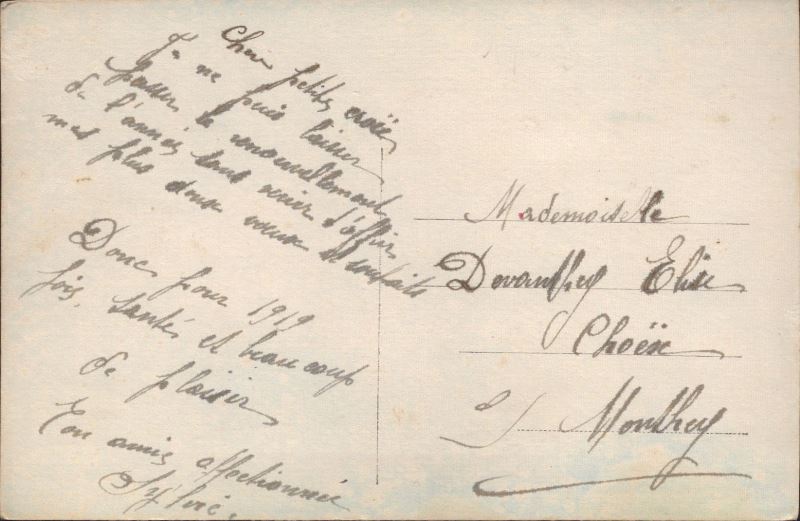 Cher petites
Je ne puis laisser
passer le renouvellement
de l'année sans venir t'offrir
mes plus doux vœux et souhaits
Donc pour 1919
joie, santé, et beaucoup
de plaisir
Ton amie affectionnée
Sylvie.
Mademoiselle
Devanthey Elise
Choëx
s/ Monthey